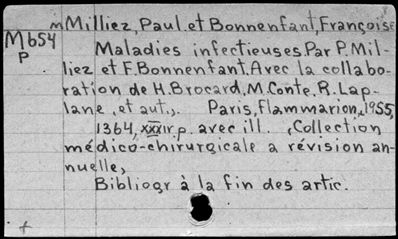 mMilliez, Paul et Bonnenfant, Françoise
M654
P
Maladies infectieuses. Par P. Mil-
liez et F. Bonnenfant. Avec la collabo-
ration de H. Brocard, M. Conte, R. Lap-
lane, et aut.,. Paris, Flammarion, 1955,
1364, xxxiv. p. avec ill. , (Collection
médico-chirurgicale a révision an-
nuelle,
Bibliogr à la fin des artic.
+